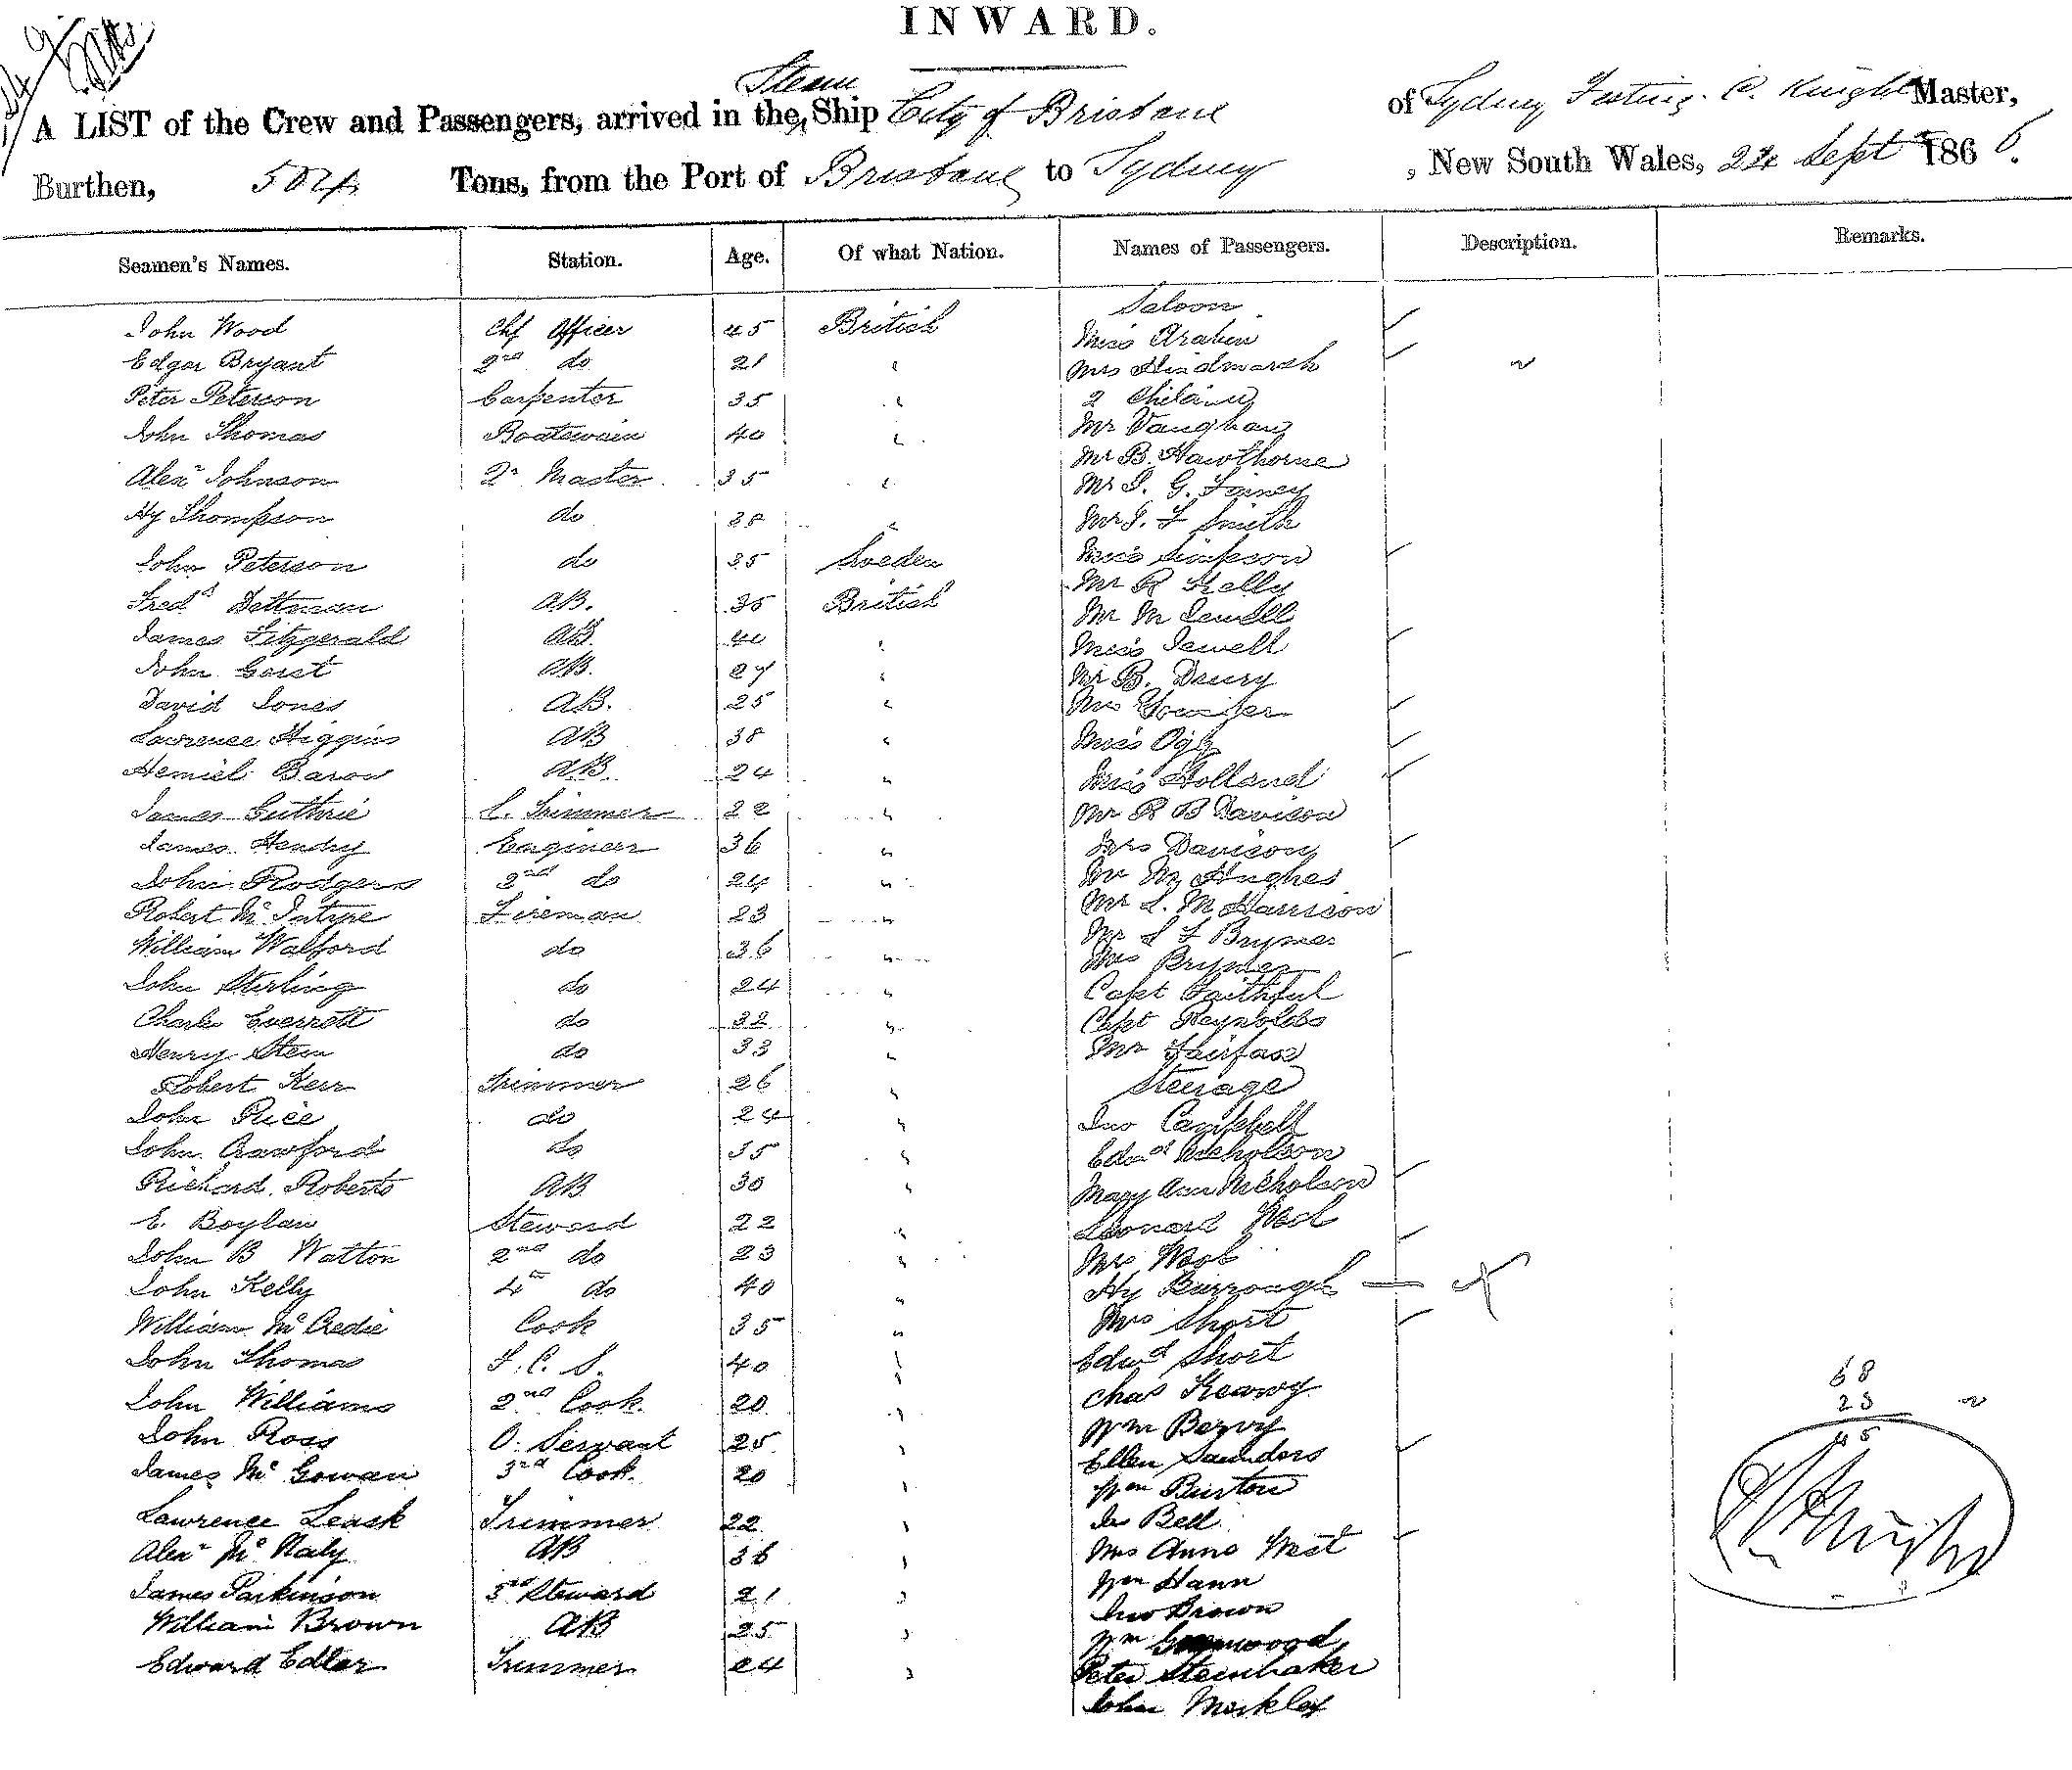 INWARD.
Steam
A LIST of the Crew and Passengers, arrived in the Ship City of Brisbane of Sydney C. Knight Master,
Burthen, 504 Tons, from the Port of Brisbane to Sydney , New South Wales, 24 Sept 1866.
Seamen's Names. Station. Age. Of what Nation. Names of Passengers. Description. Remarks.
Saloon
John Wood Chf Officer 45 British Miss Arabin
Edgar Bryant 2nd do 21 " Mrs Hindmarsh
Peter Peterson Carpenter 35 " 2 Children
John Thomas Boatswain 40 " Mr Vaughan
Mr B. Hawthorne
Alexr Johnson Qr Master 35 " Mr G.
Hy Thompson do 38 " Mr Smith
John Peterson do 35 Sweden Miss Simpson
Mr R Kelly
Fredk Dettman AB. 35 British Mr M Sewell
James Fitzgerald AB. " Miss Sewell
John AB. 27 " Mr B. Drury
David Jones AB. 25 " Mrs
Lawrence Higgins AB 38 " Miss
Baron AB 24 " Miss Holland
James Guthrie Trimmer 22 " Mr R B Davison
James Hendry Engineer 36 " Mrs Davison
John Rodgers 2nd do 24 " Mr Hughes
Robert McIntyre Fireman 23 " Mr S. M Harrison
William Walford do 36 " Mr Brymer
Mrs Brymer
John Sterling do 24 " Capt Faithful
Charles Everrett do 32 " Capt Reynolds
Henry Stein do 33 " Mr Fairfax
Robert Kerr Trimmer 26 " Steerage
John Price do 24 " Jno Campbell
John Crawford do 35 " Edwd Nicholson
Richard Roberts AB 30 " Mary Ann Nicholson
E. Boylan Steward 22 " Leonard
John B Watton 2nd do 23 " Mrs
John Kelly 4th do 40 " Hy Burrough
William McCredie Cook 35 " Mrs Short
John Thomas 40 " Edwd Short
68
John Williams 2nd Cook 20 " Chas
23
John Ross O. Servant 25 " Wm
45
James McGowan 3rd Cook 20 Ellen Saunders
Wm Burton
Lawrence Leask Trimmer 22 " Bell
Alexr McNaly AB 36 " Mrs Anne West
James Parkinson 3rd Steward 21 " Wm Hann
Jno Brown
William Brown AB 25 " Wm Greenwood
Edward Edler Trimmer 24 " Peter Steinhaker
John
C Knight